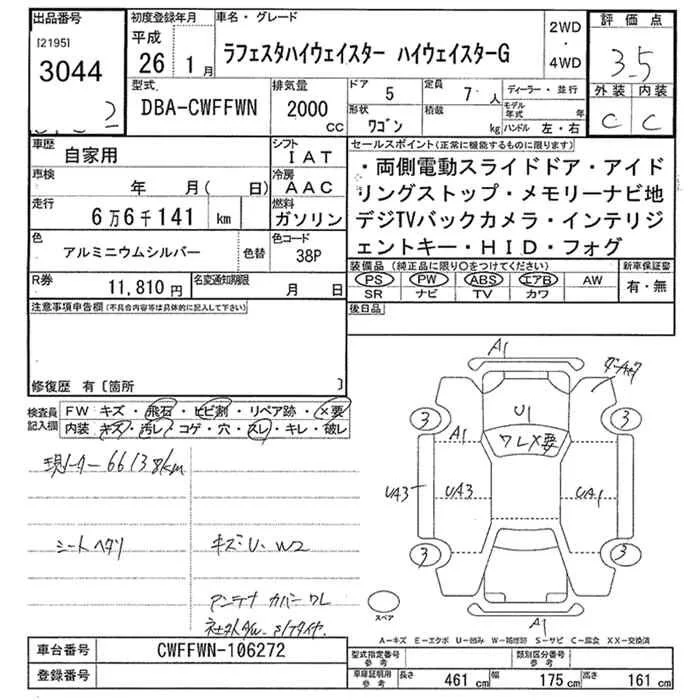 出品番号 初度登録年月 車名・グレード 2WD・4WD 評価点
[2195] 3044 平成 26 1月 ラフェスタハイウェイスター ハイウェイスターG 3.5
型式 排気量 ドア 5 定員 7人 ディーラー・並行 外装 内装
DBA-CWFFWN 2000 cc 形状 ワゴン 積載 kg モデル年式 年 ハンドル 左・右 C C
2
車歴 自家用 シフト IAT セールスポイント(正常に機能するものに限ります)
車検 年 月( 日) 冷房 AAC ・両側電動スライドドア・アイド
走行 6万6千141 km 燃料 ガソリン リングストップ・メモリーナビ地
デジTVバックカメラ・インテリジ
色 アルミニウムシルバー 色替 色コード 38P ェントキー・HID・フォグ
R券 11,810円 名変通知期限 月 日 装備品(純正品に限り○をつけてください) 新車保証書
PS PW ABS エアB AW 有・無
SR ナビ TV カワ
注意事項申告欄(不具合内容等は具体的に記入して下さい) 後日品
修復歴 有〔箇所 〕
検査員記入欄 FW キズ・飛石・ヒビ割・リペア跡・×要
内装 キズ・汚レ・コゲ・穴・スレ・キレ・破レ
A1
3 U1 3
A1 ワレX要
UA3 UA3 UA1
3 3
A1
66138km
シートヘタリ キズ・U・W2
アンテナカバーワレ
スペア
A-キズ E-エクボ U-凹み W-補修跡 S-サビ C-腐食 XX-交換済
車台番号 CWFFWN-106272 型式指定番号 参考 類別区分番号 参考
登録番号 車庫証明用 参考 長さ 461 cm 幅 175 cm 高さ 161 cm